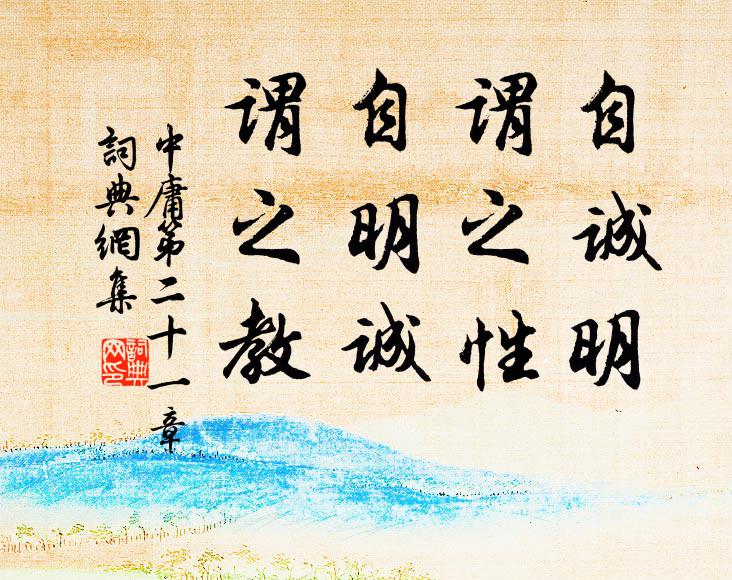 自誠明
谓之性
自明誠
谓之教
中庸第二十一章
詞典網集
詞典网印